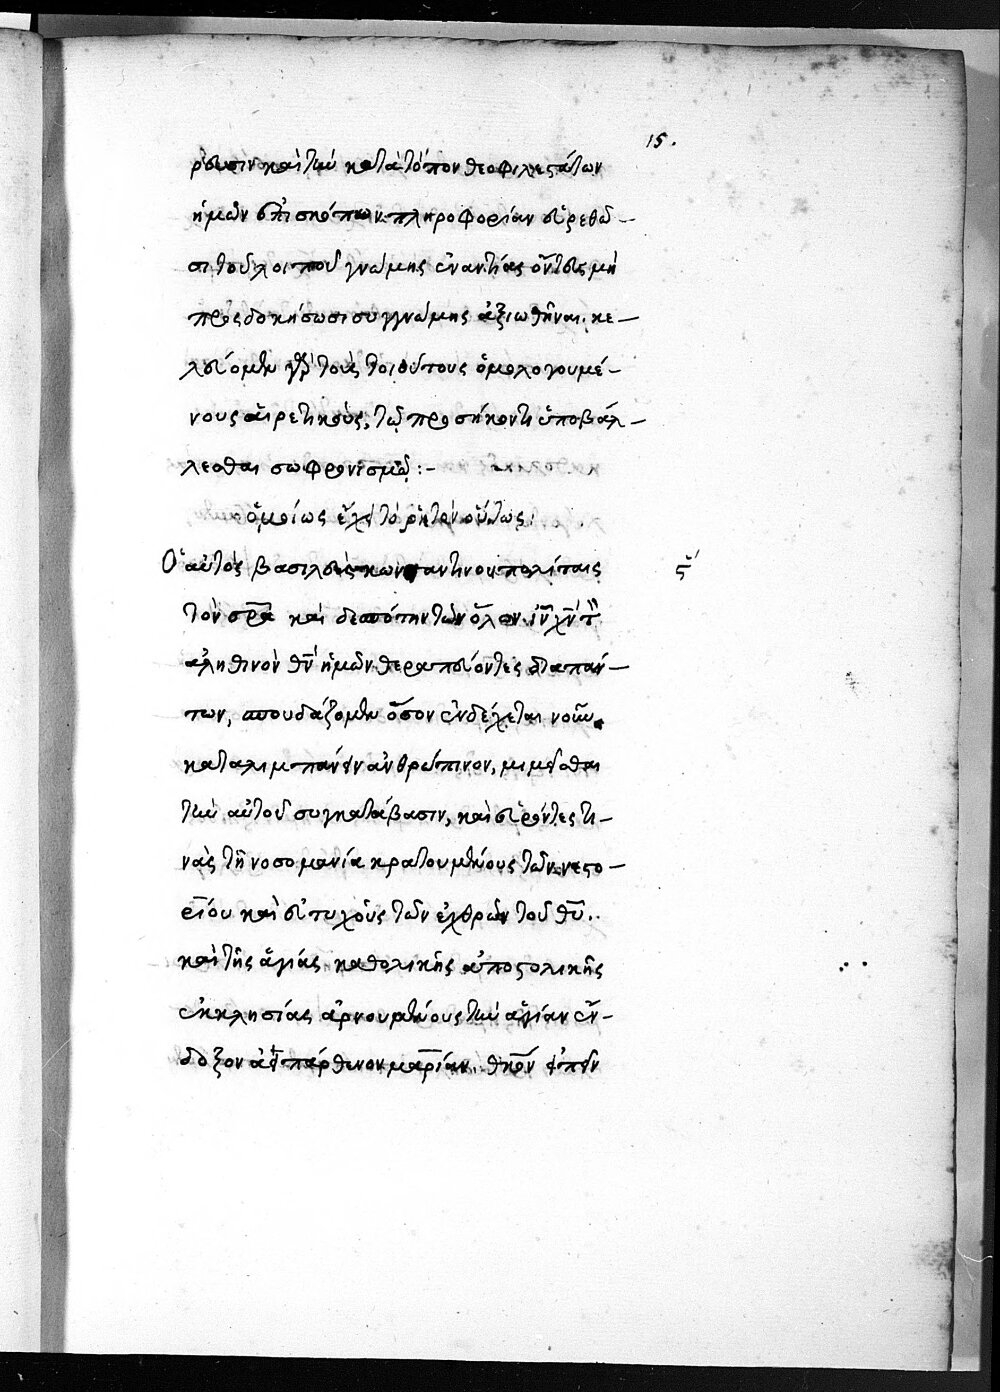 15.
ρευσιν καὶ τὴν κατὰ τόπον θεοφιλεστάτων
ἡμῶν ἐπισκόπων πληροφορίαν εὑρεθῶ–
σι τοῦ λοιποῦ γνώμης ἐναντίας ὄντες μὴ
προσδοκήσωσι συγγνώμης ἀξιωθῆναι. κε–
λεύομεν γὰρ τοὺς τοιούτους ὁμολογουμέ–
νους αἱρετικοὺς, τῷ προσήκοντι ὑποβάλ–
λεσθαι σωφρονισμῷ:–
ὁμοίως ἔχει τὸ ῥητὸν οὕτως.
Ὁ αὐτὸς βασιλεὺς κωνσταντινουπολίταις ϛ΄
τὸν σρ̅α καὶ δεσπότην τῶν ὅλων. ἰ̅ν χ̅ν τ̀
ἀληθινὸν θ̅ν ἡμῶν θεραπεύοντες διαπάν–
των, σπουδάζομεν ὅσον ἐνδέχεται νοῦν
καταλιμπάνειν ἀνθρώπινον, μιμεῖσθαι
τὴν αὐτοῦ συγκατάβασιν, καὶ εὑρόντες τι–
νὰς τῇ νόσο μανία κρατουμένους τῶν νεστο–
ρίου καὶ εὐτυχοῦς τῶν ἐχθρῶν τοῦ θ̅υ.
καὶ τῆς ἁγίας καθολικῆς ἀποστολικῆς
ἐκκλησίας ἀρνουμένους τὴν ἁγίαν ἔν–
δοξον ἀειπάρθενον μαρίαν. θ̅κον εἰπεῖν